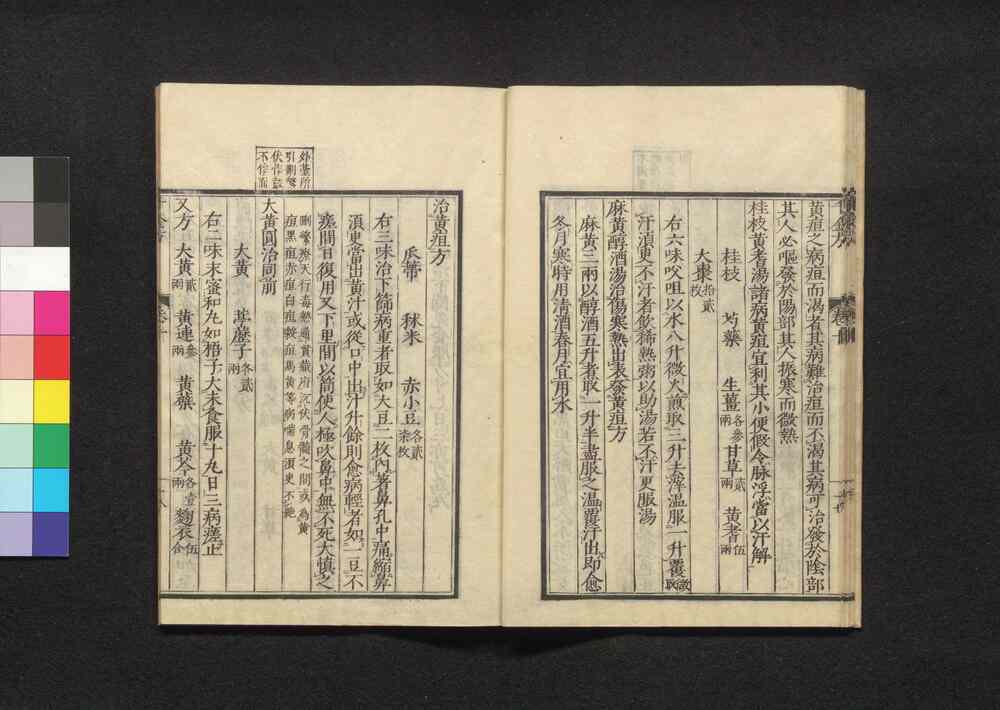 黄疸之病疸而渴者其病難治疸而不渴其病可治發於陰部
其人必嘔發於陽部其人振寒而微熱
桂枝黄耆湯諸病黄疸宜利其小便假令脉浮當以汗解
桂枝 芍藥 生薑各參兩 甘草貳兩 黄耆伍兩
大棗拾貳枚
右六味㕮咀以水八升微火煎取三升去滓温服一升覆取微
汗須㬰不汗者飲稀熱粥以助湯若不汗更服湯
麻黄醇酒湯治傷寒熱出表發黄疸方
麻黄三兩以醇酒五升煮取一升半盡服之温覆汗出即愈
冬月寒時用清酒春月宜用水
治黄疸方
瓜蔕 秫米 赤小豆各貳柒枚
右三味治下篩病重者取如大豆二枚内著鼻孔中痛縮鼻
須㬰當出黄汁或從口中出汁升餘則愈病輕者如一豆不
瘥間日復用又下里間以筒使人極吹鼻中無不死大慎之
外臺所
引刪繁
伏作
不作而
刪繁療天行毒熱通貫藏府沉伏骨髓之間或爲黄
疸黑疸赤疸白疸穀疸馬黄等病喘息須㬰不絶
大黄圓治同前
大黄 葶藶子各貳兩
右二味末蜜和丸如梧子大未食服十丸日三病瘥止
又方 大黄貳兩 黄連參兩 黄蘗 黄芩各壹兩 麴衣伍合